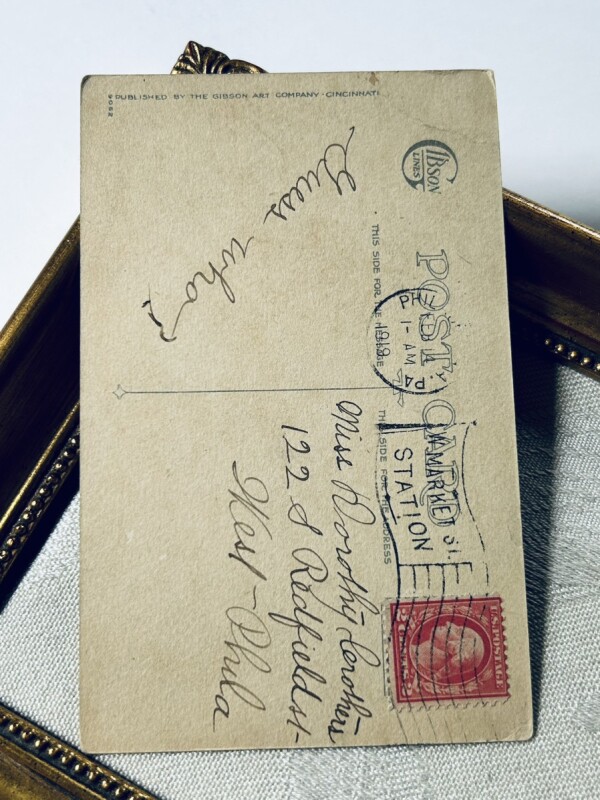 9092
PUBLISHED BY THE GIBSON ART COMPANY - CINCINNATI
GIBSON
LINES
POST CARD
THIS SIDE FOR THE MESSAGE
THIS SIDE FOR THE ADDRESS
1-AM
1919
MARKET ST.
STATION
U.S. POSTAGE
Guess who
Miss Dorothy Crothers
122 S Redfield st
West-Phila